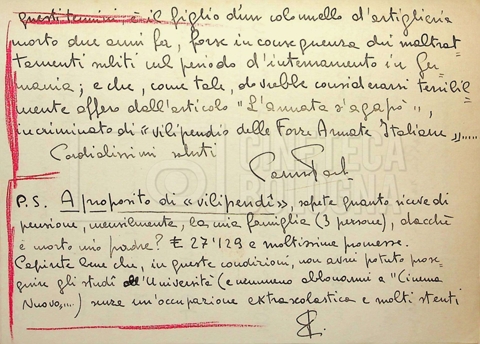 questi termini, è il figlio d'un colonnello d'artiglieria
morto due anni fa, forse in conseguenza dei maltrat-
tamenti subiti nel periodo d'internamento in Ger-
mania; e che, come tale, dovrebbe considerarsi terribil-
mente offeso dall'articolo "L'armata s'agapò",
incriminato di «vilipendio delle Forze Armate Italiane».....
Cordialissimi saluti
P.S. A proposito di «vilipendî», sapete quanto riceve di
pensione, mensilmente, la mia famiglia (3 persone), dacchè
è morto mio padre? £ 27'129 e moltissime promesse.
Capirete bene che, in queste condizioni, non avrei potuto prose-
guire gli studi all'Università (e nemmeno abbonarmi a "Cinema
Nuovo",...) senza un'occupazione extrascolastica e molti stenti
CINETECA
BOLOGNA